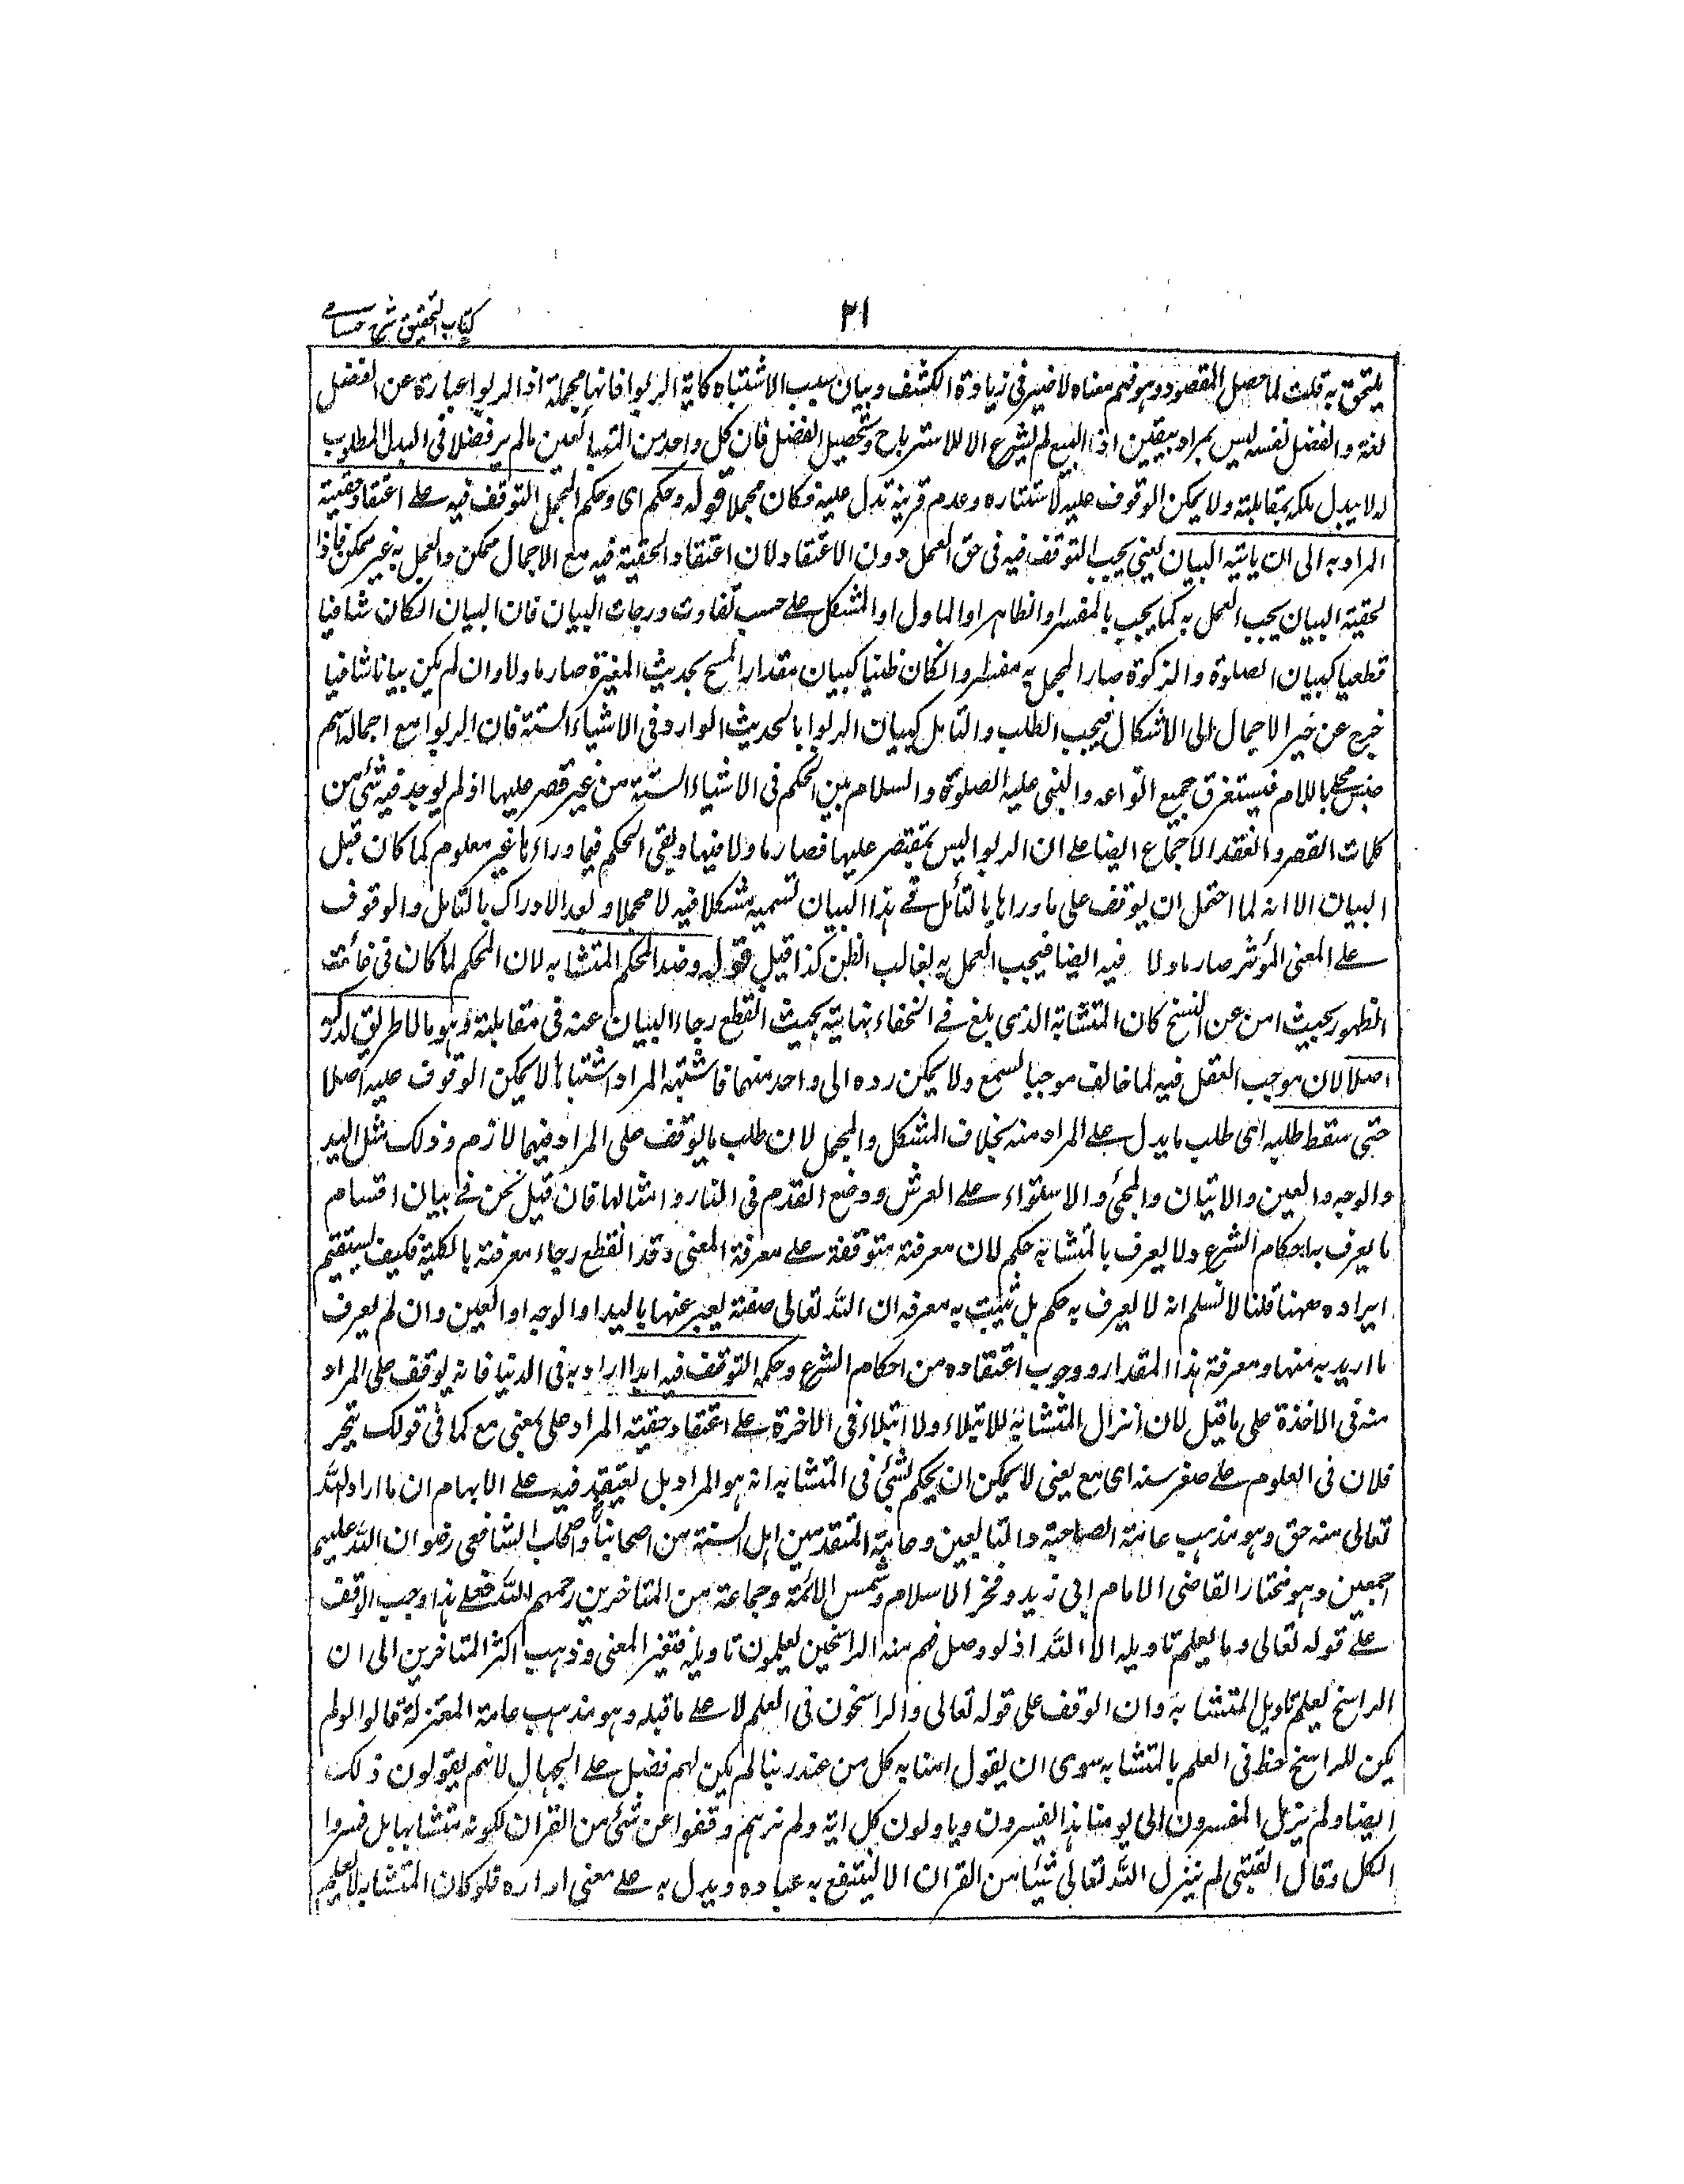 كتاب التحقيق شرح حسامي
٢١
يلتحق به قلت لما حصل المقصود وهو فهم معناه لا ضير في زيادة الكشف وبيان سبب الاشتباه كاية الربوا فانها مجملة اذ الربوا عبارة عن الفضل
لغة والفضل نفسه ليس بمراد بيقين اذ البيع لم يشرع الا للاسترباح وتحصيل الفضل فان كل واحد من المتبايعين مالم ير فضلا في البدل المطلوب
له لا يبدل ملكه بمقابلته ولا يمكن الوقوف عليه لاستتاره وعدم قرينة تدل عليه فكان مجملا قوله وحكم اى وحكم المجمل التوقف فيه على اعتقاد حقية
المراد به الى ان ياتيه البيان يعني يجب التوقف فيه في حق العمل دون الاعتقاد لان اعتقاد الحقية فيه مع الاجمال ممكن والعمل به غير ممكن فاذا
لحقيته البيان يجب العمل به كما يجب بالمفسر والظاهر او الماول او المشكل على حسب تفاوت درجات البيان فان البيان انكان شافيا
قطعيا كبيان الصلوة والزكوة صار المجمل به مفسر وانكان ظنيا كبيان مقدار المسح بحديث المغيرة صار ماولا وان لم يكن بيانا شافيا
خرج عن خير الاجمال الى الاشكال فيجب الطلب والتامل كبيان الربوا بالحديث الوارد في الاشياء الستة فان الربوا مع اجماله اسم
جنس محلى باللام فيستغرق جميع انواعه والنبي عليه الصلوة والسلام بين الحكم في الاشياء الستة من غير قصر عليها اذ لم يوجد فيه شئ من
كلمات القصر وانعقد الاجماع ايضا على ان الربوا ليس بمقتصر عليها فصار ماولا فيها وبقي الحكم فيما وراءها غير معلوم كما كان قبل
البيان الا انه لما احتمل ان يوقف على ما وراها بالتأمل في هذا البيان تسمية مشكلا فيه لا مجملا وبعد الادراك بالتامل والوقوف
على المعنى المؤثر صار ماولا فيه ايضا فيجب العمل به بغالب الظن كذا قيل قوله وضد المحكم المتشابه لان المحكم لما كان في غاية
الظهور بحيث امن عن النسخ كان المتشابه الذي بلغ في الخفاء نهايته بحيث انقطع رجاء البيان عنه في مقابلته وهو مالا طريق لدركه
اصلا لان موجب العقل فيه لما خالف موجب السمع ولا يمكن رده الى واحد منهما فاشتبه المراد اشتباها لا يمكن الوقوف عليه اصلا
حتى سقط طلبه اى طلب ما يدل على المراد منه بخلاف المشكل والمجمل لان طلب ما يوقف على المراد فيهما لازم وذلك مثل اليد
والوجه والعين والاتيان والمجئ والاستواء على العرش ووضع القدم في النار وامثالها فان قيل نحن في بيان اقسام
ما يعرف به احكام الشرع ولا يعرف بالمتشابه حكم لان معرفته متوقفة على معرفة المعنى وقد انقطع رجاء معرفته بالكلية فكيف يستقيم
ايراده ههنا قلنا لا نسلم انه لا يعرف به حكم بل يثبت به معرفه ان الله تعالى صفة يعبر عنها باليد او الوجه او العين وان لم يعرف
ما اريد به منها ومعرفة هذا المقدار ووجوب اعتقاده من احكام الشرع وحكمه التوقف فيه ابدا اراد به في الدنيا فانه يوقف على المراد
منه في الاخذة على ما قيل لان انزال المتشابه للابتلاء ولا ابتلاء في الاخرة على اعتقاد حقية المراد على بمعنى مع كما في قولك تبحر
فلان في العلوم على صغر سنه اى مع يعني لا يمكن ان يحكم بشئ في المتشابه انه هو المراد بل يعتقد فيه على الابهام ان ما اراد الله
تعالى منه حق وهو مذهب عامة الصحابة والتابعين وعامة المتقدمين اهل السنة من اصحابنا واصحاب الشافعي رضوان الله عليهم
اجمعين وهو مختار القاضي الامام ابي زيد وفخر الاسلام وشمس الائمة وجماعة من المتاخرين رحمهم الله فعلى هذا وجب الوقف
على قوله تعالى وما يعلم تاويله الا الله اذ لو وصل فهم منه الراسخين يعلمون تاويله فتغير المعنى وذهب اكثر المتاخرين الى ان
الراسخ يعلم تاويل المتشابه وان الوقف على قوله تعالى والراسخون في العلم لا على ما قبله وهو مذهب عامة المعتزلة قالوا لو لم
يكن للراسخ حظ في العلم بالمتشابه سوى ان يقول امنا به كل من عند ربنا لم يكن لهم فضل على الجهال لانهم يقولون ذلك
ايضا ولم يزل المفسرون الى يومنا هذا يفسرون وياولون كل اية ولم نرهم وقفوا عن شئ من القران لكونه متشابها بل فسروا
الكل وقال القتبي لم ينزل الله تعالى شيئا من القران الا لينتفع به عباده ويدل به على معنى اراده فلو كان المتشابه لا يعلم